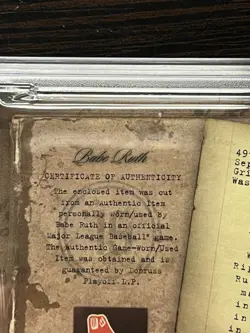 Babe Ruth
CERTIFICATE OF AUTHENTICITY
The enclosed item was cut
from an Authentic Item
personally worn/used by
Babe Ruth in an official
Major League Baseball® game.
The authentic Game-Worn/Used
Item was obtained and is
guaranteed by Donruss
Playoff L.P.
49
Sep
Gri
Was
W
Rip
Ru
ma
in
in